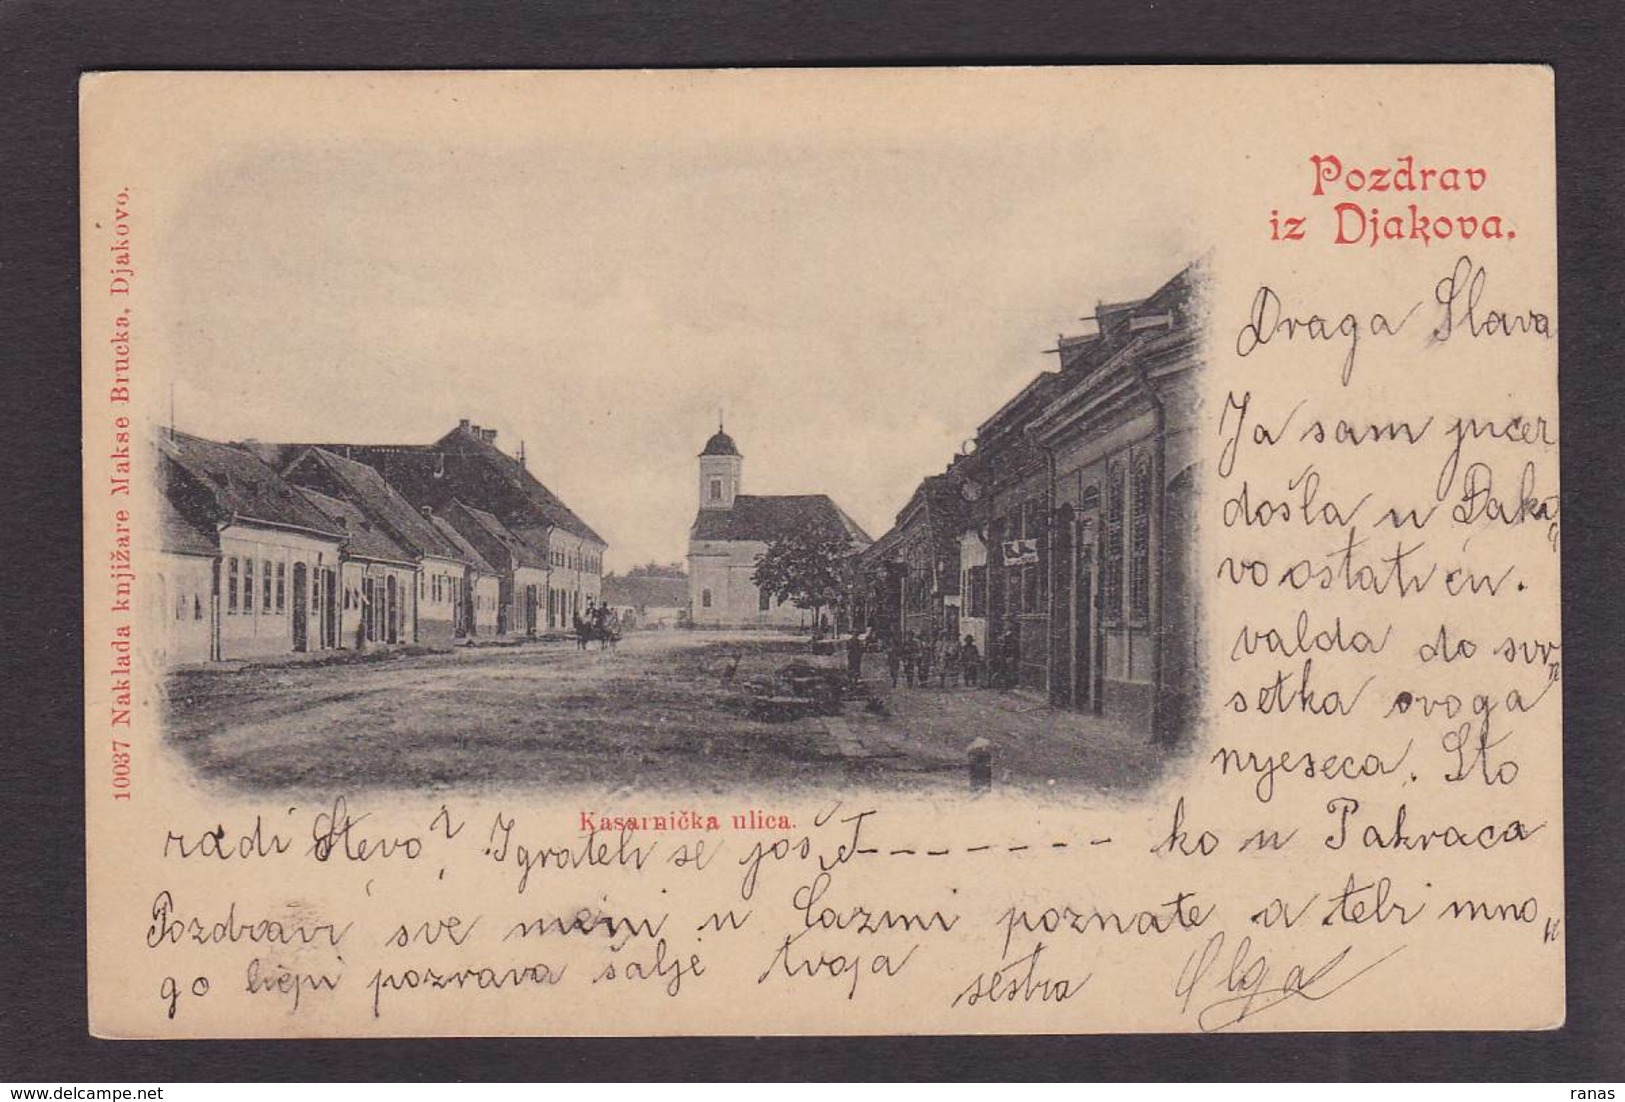 Pozdrav
iz Djakova.
10037 Naklada knjižare Makse Brucka, Djakovo.
Kasarnička ulica.
Draga Slava
Ja sam jučer
došla u Đako„
vo ostati ću.
valda do svr„
setka ovoga
mjeseca. Što
radi Stevo? Igrateli se još T-------- ko u Pakraca
Pozdravi sve meni u poznate a tebi mno„
go liepi pozrava šalje tvoja sestra Olga
ranas